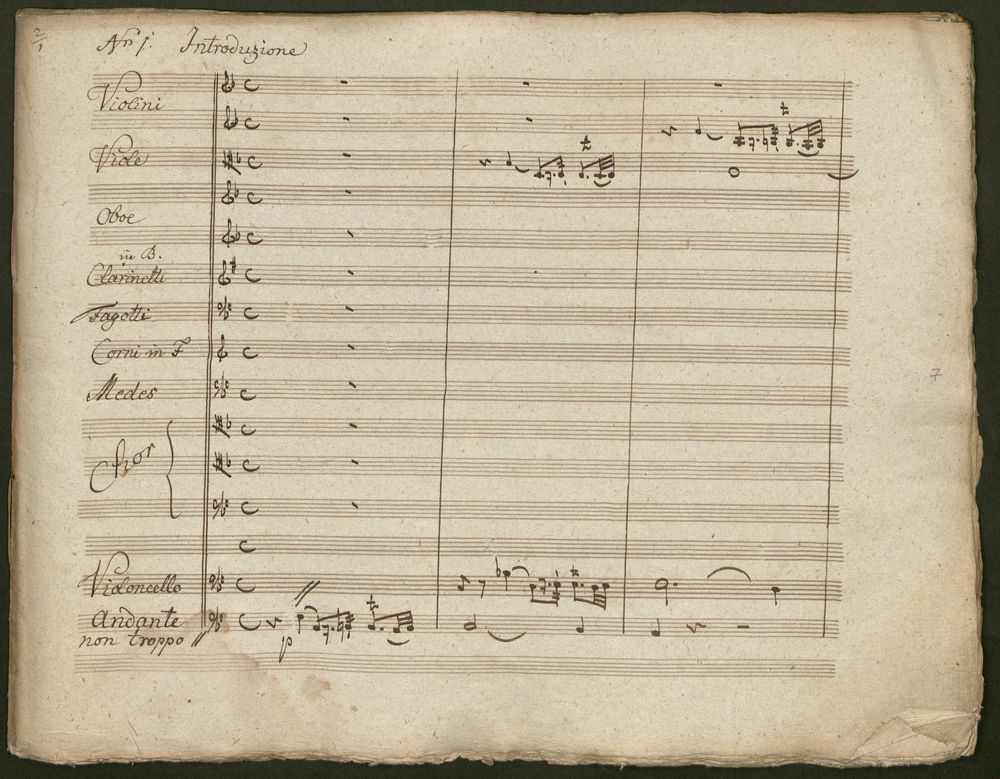 2/1
Nro 1. Introduzione
Violini
Viole
Oboe
in B.
Clarinetti
Fagotti
Corni in F
Medes
Chor
Violoncello
Andante
non troppo
p
7